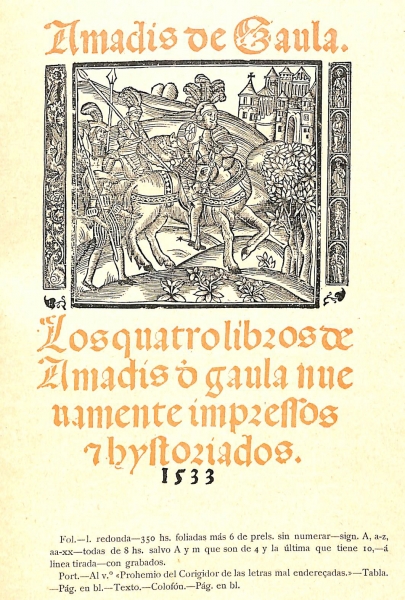 Amadis de Gaula.
Los quatro libros de
Amadis đ gaula nue
uamente impressos
⁊ hystoriados.
1533
Fol.—l. redonda—350 hs. foliadas más 6 de prels. sin numerar—sign. A, a-z,
aa-xx—todas de 8 hs. salvo A y m que son de 4 y la última que tiene 10,—á
línea tirada—con grabados.
Port.—Al v.º «Prohemio del Corigidor de las letras mal endereçadas.»—Tabla.
—Pág. en bl.—Texto.—Colofón.—Pág. en bl.